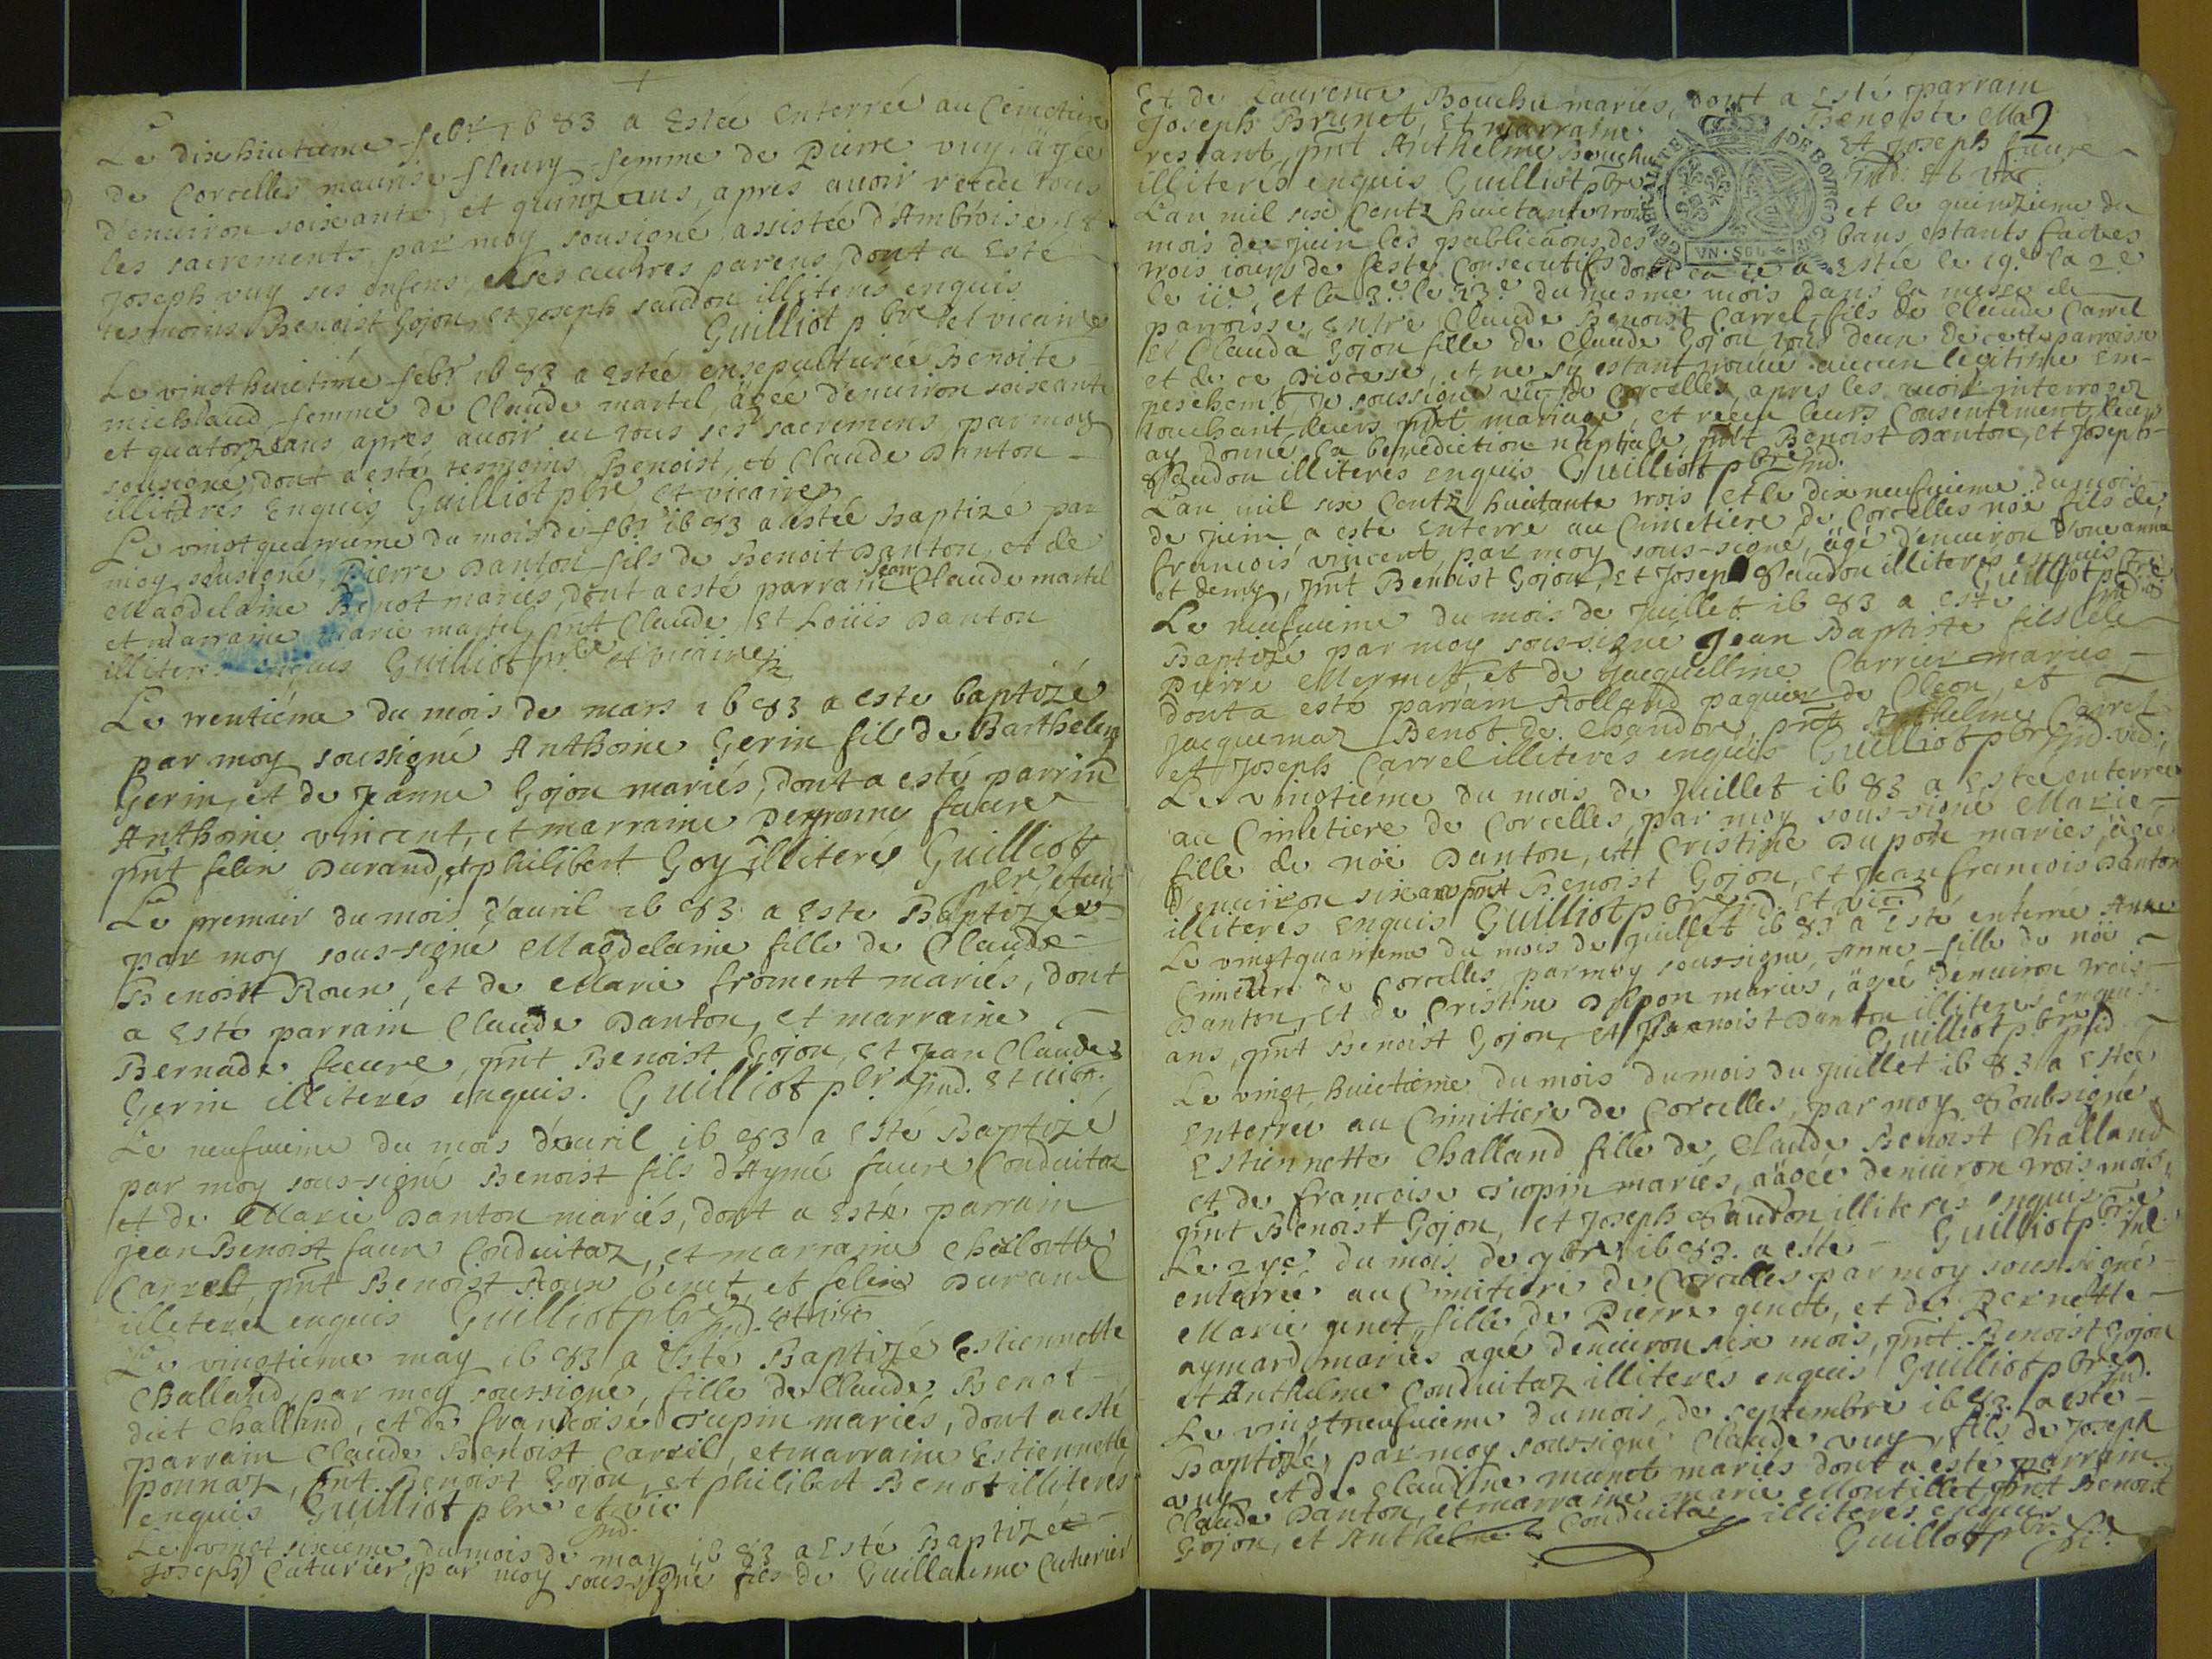 Le dixhiutieme febr 1683 a Estee Enterrée au Cimetiere
de Corcelles maurise fleury femme de Pierre vuy, âgée
d'enuiron soixante, et quinz ans, apres auoir receu tous
les sacrements, par moy sousigné, assistée d'Ambroise, et
Joseph vuy ses enfens, et ses autres parens, dont a Esté
tesmoins Benoist Gojon, et Joseph saudon illiterés enquis
Guilliot pbre et vicaire
Le vingt huictiéme febr 1683 a Estée ensepulturée Benoite
michlaud femme de Claude martel, âgée d'enuiron soixante
et quatorz ans, apres auoir eu tous ses sacremens par moy
sousigné, dont a esté tesmoins Benoist, et Claude Danton
illiteres Enquis Guilliot pbre et vicaire
Le vingt quatrieme du mois de fbr 1683 a estée Baptizé par
moy sousigné, Pierre Danton fils de Benoit Danton, et de
Magdelaine Benot mariés, dont a esté parrain Jean Claude martel
et marraine marie martel, pnt Claude, Et Loüis Danton
illiterés enquis Guilliot pbre et vicaire
Le trentiéme du mois de mars 1683 a este baptizé
par moy soussigné Anthoine Gerin fils de Barthelemy
Gerin, et de Jeanne Gojon mariés, dont a esté parrin
Anthoine vincent, et marraine Peyronne faure
pnt felix Durand, et philibert Goy illiterés Guilliot
pbre et vic
Le premair du mois d'auril 1683 a Este Baptizée
par moy sous-signé Magdelaine fille de Claude
Benoist Roux, et de Marie froment mariés, dont
a Esté parrain Claude Danton, et marraine
Bernade faeure, pnt Benoist Gojon, et Jean Claude
Gerin illiterés enquis. Guilliot pbr Ind. Et vic.
Le neufuieme du mois d'auril 1683 a Esté Baptizé
par moy sous-signé Benoist fils d'Aymé faure Conduitaz
et de Marie Danton mariés, dont a Esté parrain
jean Benoist faure Conduitaz, et marraine Charlotte
Carrel, pnt Benoist Roux Genet, et felix Durand
illiterés enquis Guilliot pbre Ind. et vic
Le vingtieme may 1683 a Esté Baptizé Estiennette
Challand, par moy soussigné, fille de Claude Benoit
dict Challand, et de francoise Tupin mariés, dont a esté
parrain Claude Benoist Carrel, et marraine Estiennette
ponnaz, pnt Benoist Gojon, et philibert Benot illiterés
enquis Guilliot pbre et vic
Ind.
Le vingt sixiéme du mois de may 1683 a Esté Baptizé
Joseph Cuturier, par moy sous-signé fils de Guillaume Cuturier
Et de Laurence Bouchu mariés, dont a Esté parrain
Joseph Brunet, Et marraine Benoiste Ma 2
restant, pnt Anthelme Bouchu Et Joseph faure
illiterés enquis Guilliot pbre Ind. Et vic
L'an mil six Centz huictante trois et le quinzieme du
mois de juin les publicaons des bans estants faictes
trois iours de festes Consecutifs dont la 1e a Estée le 19e la 2e
GENERALITE DE BOURGOGNE
VN · SOL
le 11e, et la 3e le 13e du mesme mois dans la messe de
parroisse, Entre Claude Benoist Carrel fils de Claude Carrel
et Clauda Gojon fille de Claude Gojon tous deux de cette parroisse
et de ce Diocese, et ne s'y estant trouué aucun legitime Em-
peschemt, Je soussigné vic de Corcelles, apres les auoir interrogez
touchant leurs pnt mariage, et receu leurs Consentement, leur
ay donné la benediction nuptiale pnt Benoist Danton, et Joseph
Saudon illiteres enquis Guilliot pbre Ind.
L'an mil six Centz huictante trois et le dixneufuieme du mois
de juin a esté Enterre au Cimetiere de Corcelles noë fils de
francois vincent, par moy sous-signé, âgé d'enuiron d'une année
et demy, pnt Benoist Gojon, Et Joseph Saudon illiteres enquis
Guilliot pbre
Le neufuieme du mois de Juillet 1683 a esté
Baptizé par moy sous-signé Jean Baptiste fils de
Pierre Mermet, et de Jacquelline Carrier mariés
dont a esté parrain Rolland paquier de Cleon, et
Jacquemaz Benot de Chandore, pnt Anthelme Carrel
et Joseph Carrel illiterés enquis Guilliot pbre Ind. vic.
Le vingtiéme du mois de Juillet 1683 a Estée enterrée
au Cimetiere de Corcelles, par moy sous-signé Marie
fille de noë Danton, et Cristine Dupon mariés, âgée
d'enuiron six ans pnt Benoist Gojon, et Jean francois Danton
illiterés Enquis Guilliot pbre Ind. Et vic
Le vingtquatrieme du mois de juillet 1683 a Esté enterrée Anne
Cimetiere de Corcelles, par moy sous-signé, Anne fille de noë
Danton, Et de Cristine Dupon mariés, âgée d'enuiron trois
ans, pnt Benoist Gojon, et Benoist Danton illiterés enquis
Guilliot pbre Ind
Le vingt huictieme du mois du mois du Juillet 1683 a Estée
Enterrée au Cimitiere de Corcelles, par moy Soubsigné
Estiennette Challand fille de Claude Benoist Challand
et de francoise Tupin mariés, aâgée d'enuiron trois mois,
pnt Benoist Gojon, et Joseph Saudon illiterés enquis
Guilliot pbre Ind
Le 27e du mois de 7bre 1683. a esté
enterrée au Cimitiere de Corcelles par moy soussigné
Marie genet, fille de Pierre genet, et de Pernette
aymard mariés agé d'enuiron six mois, pnt Benoist Gojon
et Anthelme Conduitaz illiterés enquis Guilliot pbre
Ind.
Le vingtneufuieme du mois de septembre 1683. a esté
Baptizé, par moy soussigné Claude vuy, fils de Joseph
vuy et de Claudine munet mariés dont a esté parrain
Claude Danton, et marraine marie Montillet pnt Benoist
Gojon, et Anthelme Conduitaz illiteres enquis
Guilliot pbre